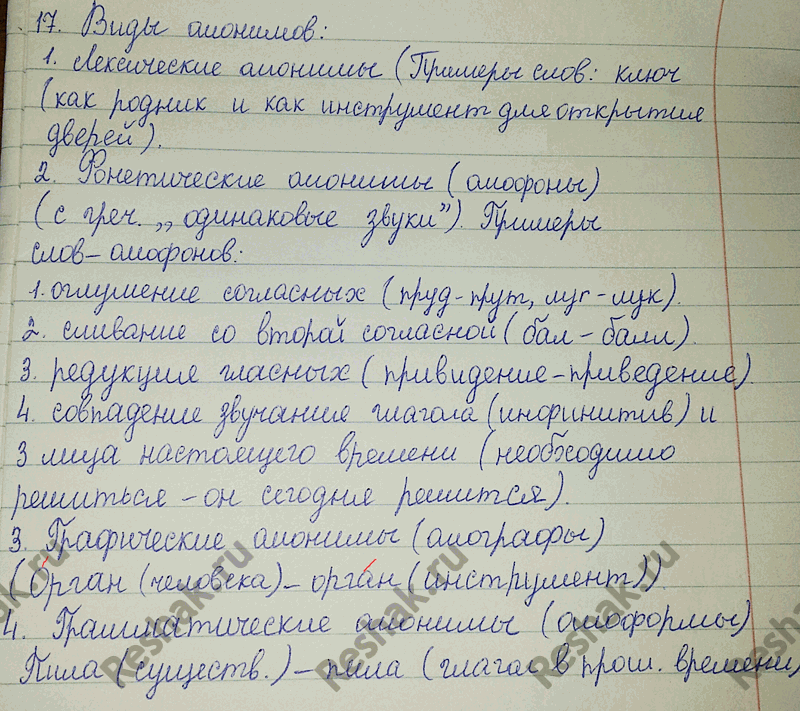 17. Виды омонимов:
1. Лексические омонимы (Примеры слов: ключ
(как родник и как инструмент для открытия
дверей).
2. Фонетические омонимы (омофоны)
(с греч. „одинаковые звуки”). Примеры
слов-омофонов:
1. оглушение согласных (пруд-прут, луг-лук).
2. сливание со второй согласной (бал-балл).
3. редукция гласных (привидение-приведение)
4. совпадение звучания глагола (инфинитив) и
3 лица настоящего времени (необходимо
решиться - он сегодня решится).
3. Графические омонимы (омографы)
(О́рган (человека) - орга́н (инструмент))
4. Грамматические омонимы (омоформы)
Пила (существ.) - пила (глагол в прош. времени)
Reshak.ru
Reshak.ru
Reshak.ru